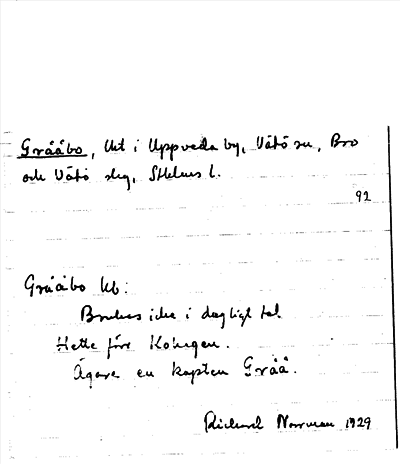 Grååbo, Uti i Uppveda by, Vätö sn, Bro
och Vätö slg, Sthlms l.
92
Grååbo Ub:
Brukas icke i dagligt tal.
Hette förr Kohagen.
Ägare en kapten Gråå.
Richard Norrman 1929